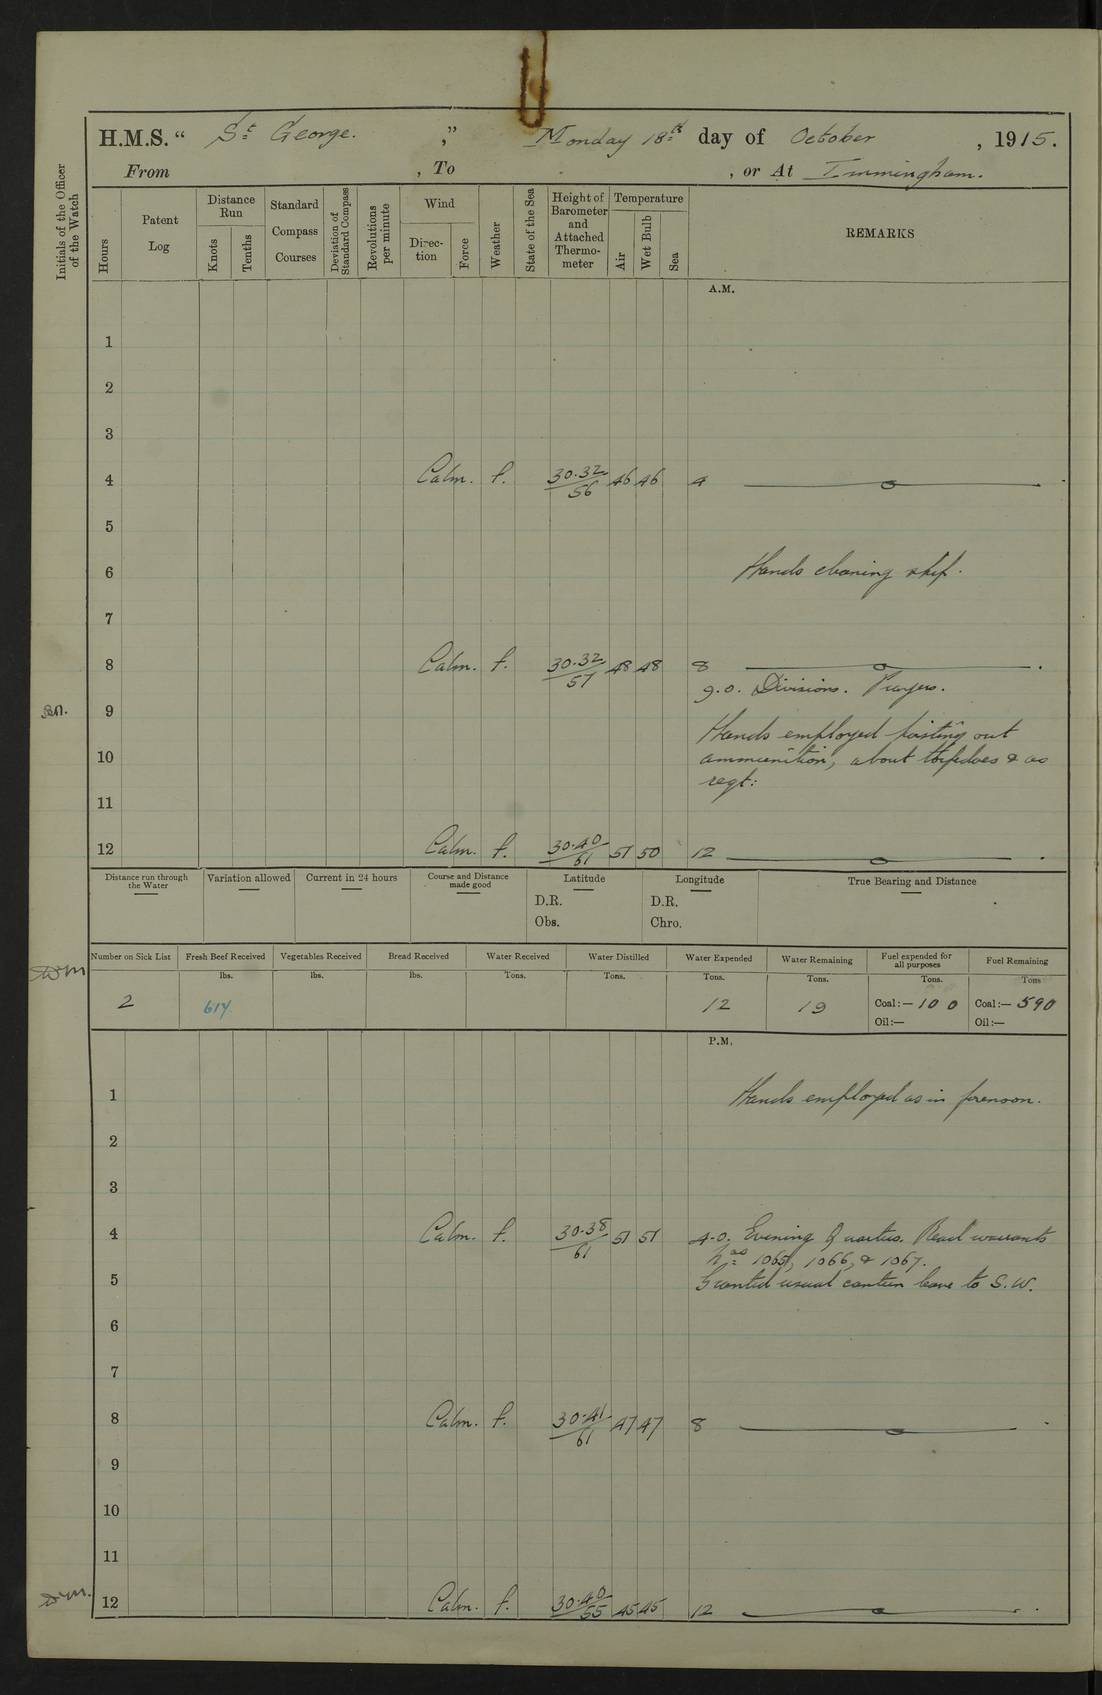 H.M.S. “ St George. ,” Monday 18th day of October , 1915.
From , To , or At Immingham.
Initials of the Officer of the Watch
Hours
Patent Log
Distance Run
Knots
Tenths
Standard Compass Courses
Deviation of Standard Compass
Revolutions per minute
Wind
Direc-tion
Force
Weather
State of the Sea
Height of Barometer and Attached Thermo-meter
Temperature
Air
Wet Bulb
Sea
REMARKS
A.M.
1
2
3
4 Calm. f. 30.32/56 46 46 4
5
6 Hands cleaning ship.
7
8 Calm. f. 30.32/57 48 48 8
9.0. Divisions. Prayers.
9
Hands employed hoisting out
10 ammunition, about torpedoes & as
reqt:
11
12 Calm. f. 30.40/61 51 50 12
Distance run through the Water
Variation allowed
Current in 24 hours
Course and Distance made good
Latitude
D.R.
Obs.
Longitude
D.R.
Chro.
True Bearing and Distance
Number on Sick List
Fresh Beef Received
Vegetables Received
Bread Received
Water Received
Water Distilled
Water Expended
Water Remaining
Fuel expended for all purposes
Fuel Remaining
lbs. lbs. lbs. Tons. Tons. Tons. Tons. Tons. Tons
2 614 12 19 Coal:— 10 0 Coal:— 590
Oil:— Oil:—
P.M.
1 Hands employed as in forenoon.
2
3
4 Calm. f. 30.38/61 51 51 4.0. Evening Quarters. Read warrants
Nos 1065, 1066, & 1067.
5 Granted usual canteen leave to S.W.
6
7
8 Calm. f. 30.41/61 47 47 8
9
10
11
12 Calm. f. 30.40/55 45 45 12